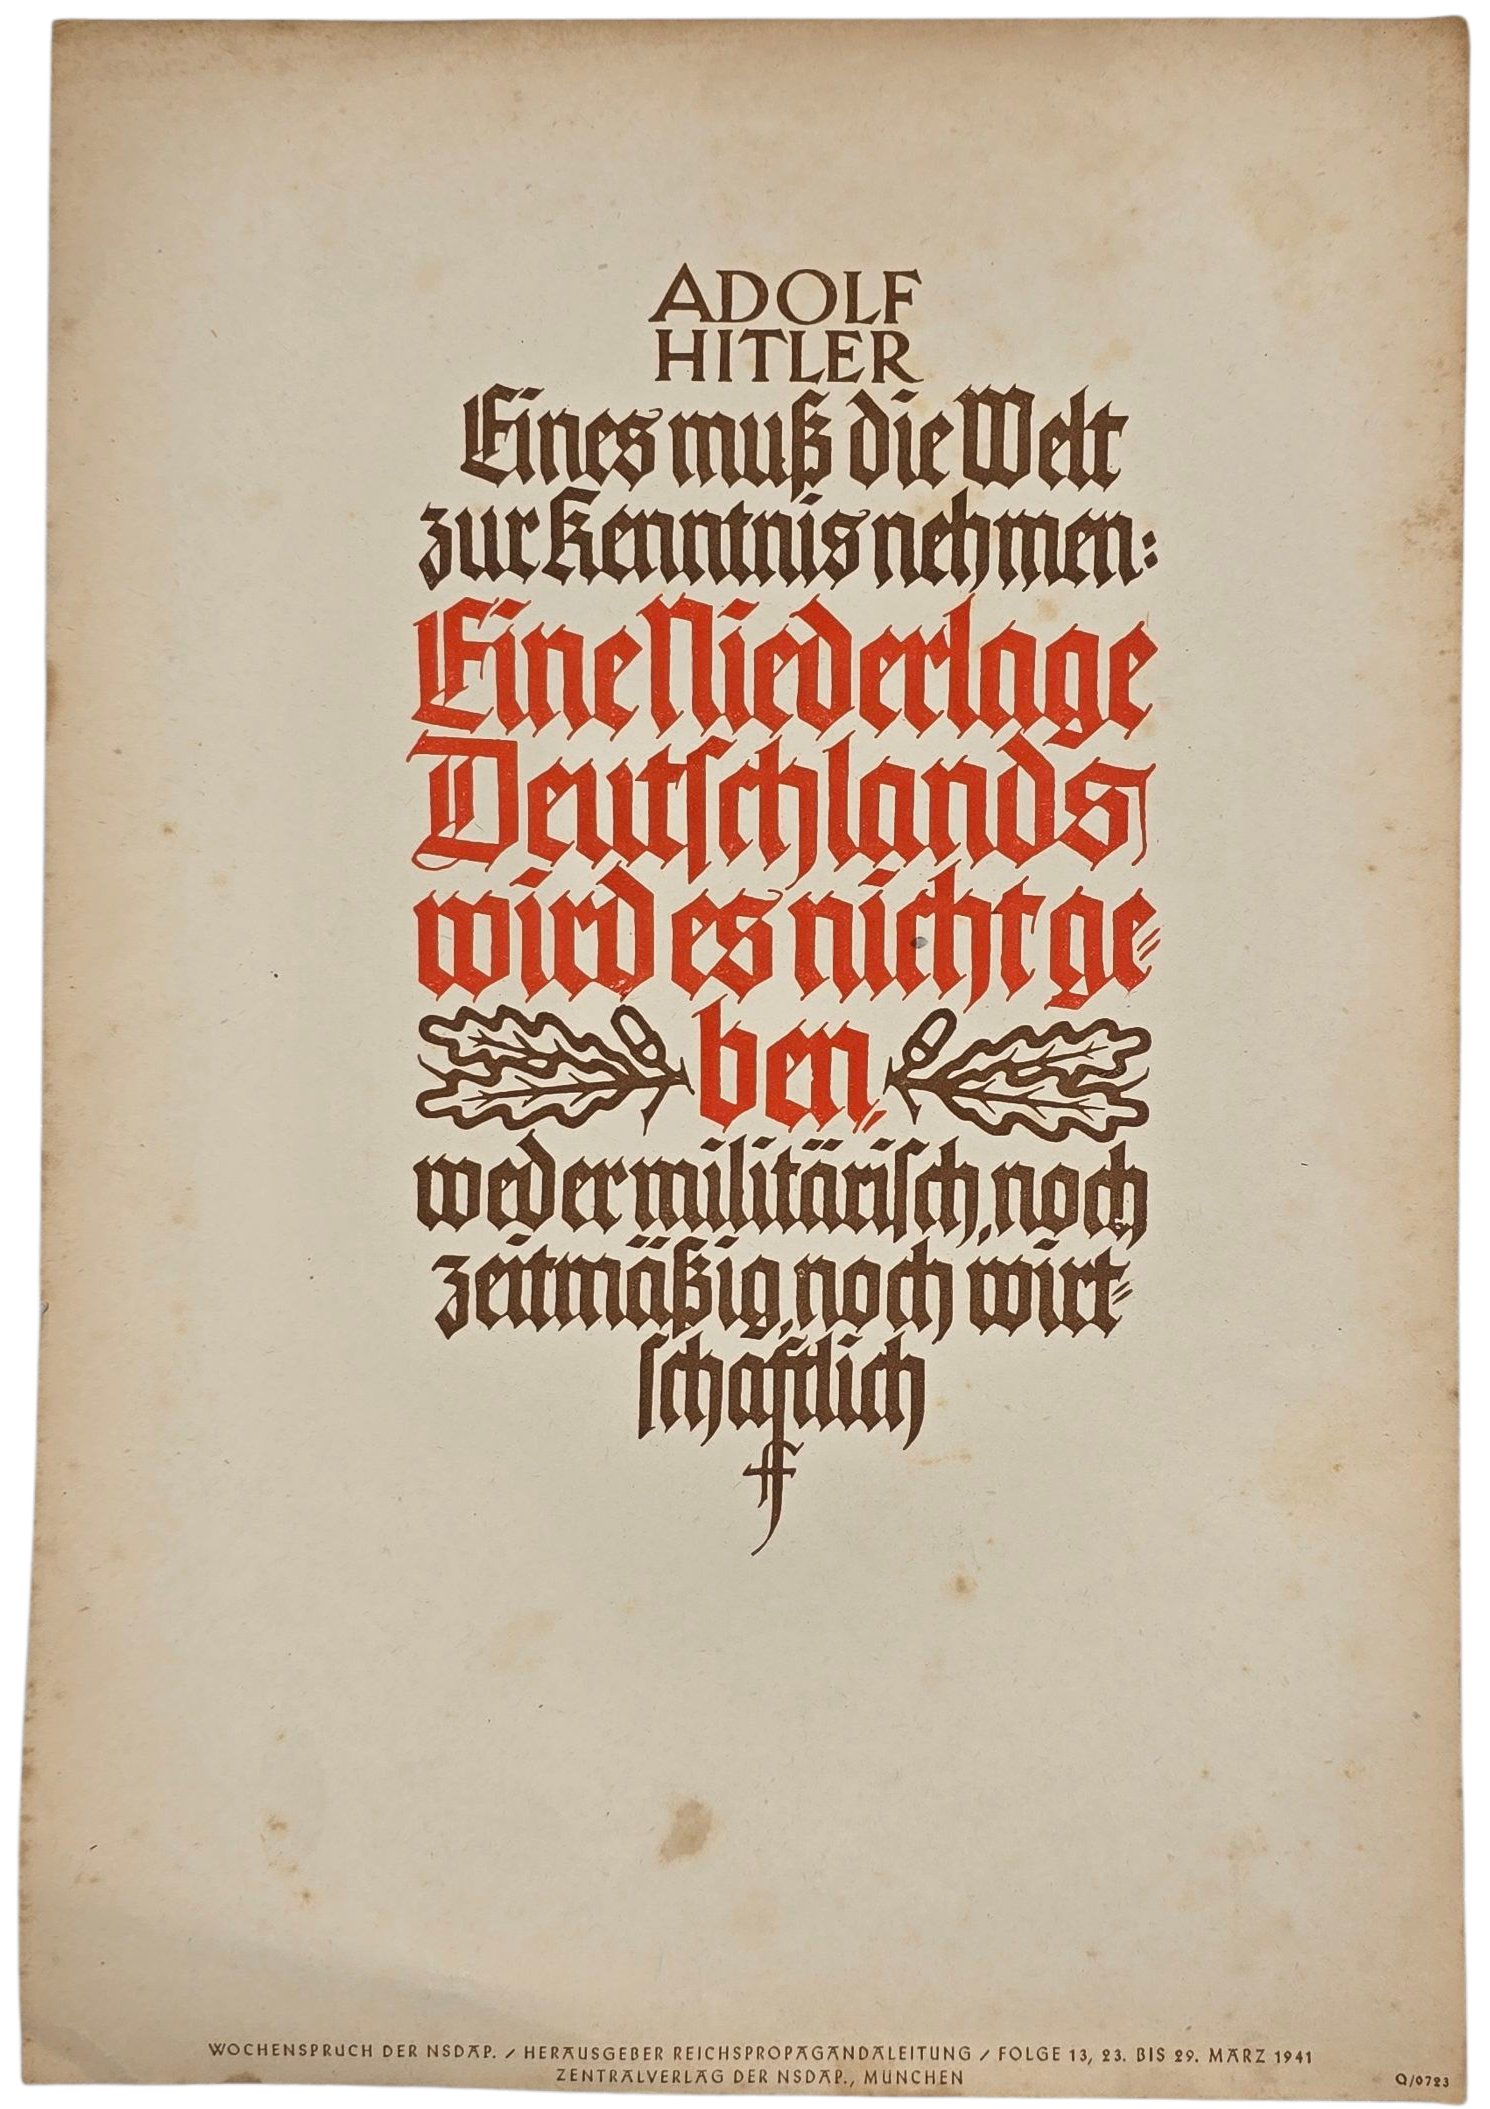 ADOLF
HITLER
Eines muß die Welt
zur Kenntnis nehmen:
Eine Niederlage
Deutschlands
wird es nicht ge-
ben,
weder militärisch, noch
zeitmäßig, noch wirt-
schaftlich
WOCHENSPRUCH DER NSDAP. / HERAUSGEBER REICHSPROPAGANDALEITUNG / FOLGE 13, 23. BIS 29. MÄRZ 1941
ZENTRALVERLAG DER NSDAP., MÜNCHEN
Q/0723